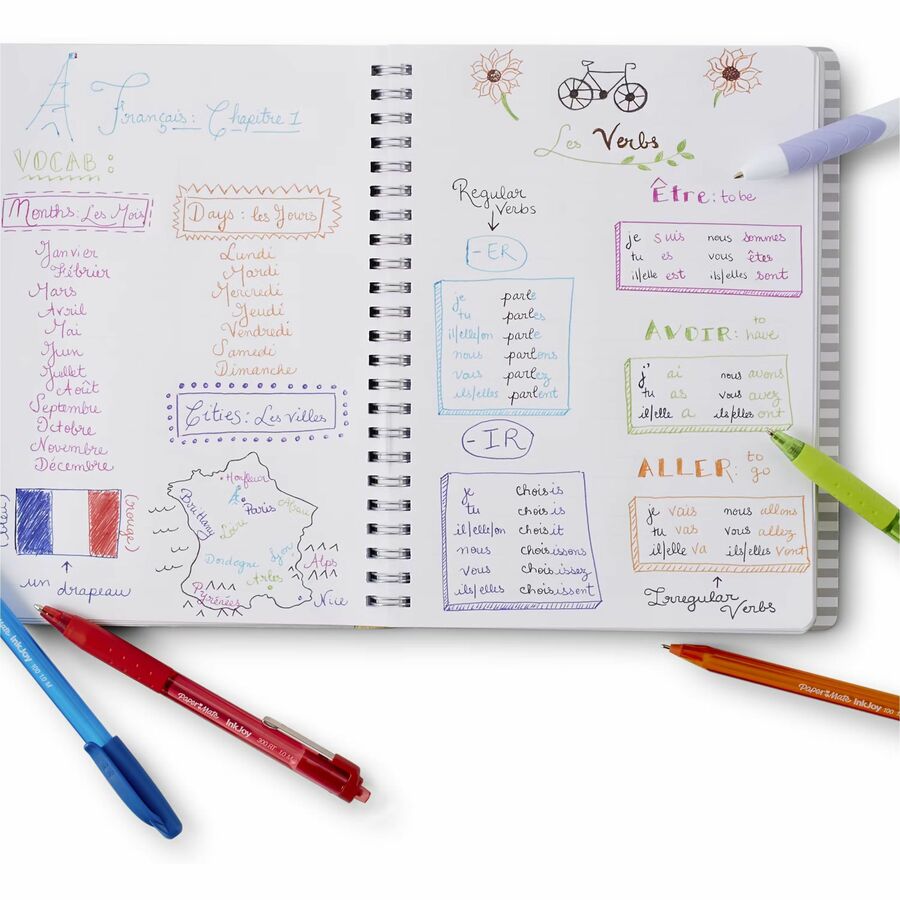 Français: Chapitre 1
VOCAB:
Months: Les Mois
Janvier
Février
Mars
Avril
Mai
Juin
Juillet
Août
Septembre
Octobre
Novembre
Décembre
Days: les Jours
Lundi
Mardi
Mercredi
Jeudi
Vendredi
Samedi
Dimanche
Cities: Les villes
(bleu)
(rouge)
un drapeau
Honfleur
Paris
Brittany
Loire
Dordogne
Lyon
Alps
Arles
Pyrénées
Nice
Les Verbs
Regular
Verbs
-ER
je parle
tu parles
il/elle/on parle
nous parlons
vous parlez
ils/elles parlent
-IR
je choisis
tu choisis
il/elle/on choisit
nous choisissons
vous choisissez
ils/elles choisissent
Être: to be
je suis nous sommes
tu es vous êtes
il/elle est ils/elles sont
AVOIR: to have
j' ai nous avons
tu as vous avez
il/elle a ils/elles ont
ALLER: to go
je vais nous allons
tu vas vous allez
il/elle va ils/elles vont
Irregular Verbs
Paper Mate InkJoy 100 1.0 M
Paper Mate InkJoy 300 RT 1.0 M
Paper Mate InkJoy 100